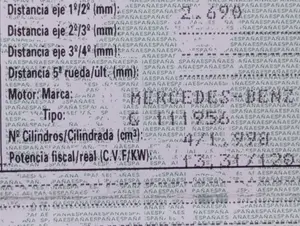 Distancia eje 1º/2º (mm): 2.690
Distancia eje 2º/3º (mm):
Distancia eje 3º/4º (mm):
Distancia 5ª rueda/últ. (mm):
Motor: Marca: MERCEDES-BENZ
Tipo: G 111956
Nº Cilindros/Cilindrada (cm³) 4/1.998
Potencia fiscal/real (C.V.F/KW): 13,31/120